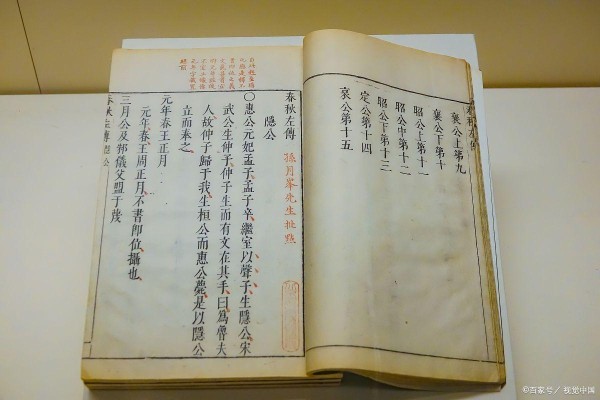 春秋左傳
襄公上第九
襄公下第十
昭公上第十一
昭公中第十二
昭公下第十三
定公第十四
哀公第十五
春秋左傳
孫月峯先生批點
隱公
〇惠公元妃孟子孟子卒繼室以聲子生隱公宋
武公生仲子仲子生而有文在其手曰為魯夫
人故仲子歸于我生桓公而惠公薨是以隱公
立而奉之
元年春王正月
元年春王周正月不書卽位攝也
三月公及邾儀父盟于蔑
春秋左傳 隱公
©百家号/視觉中国